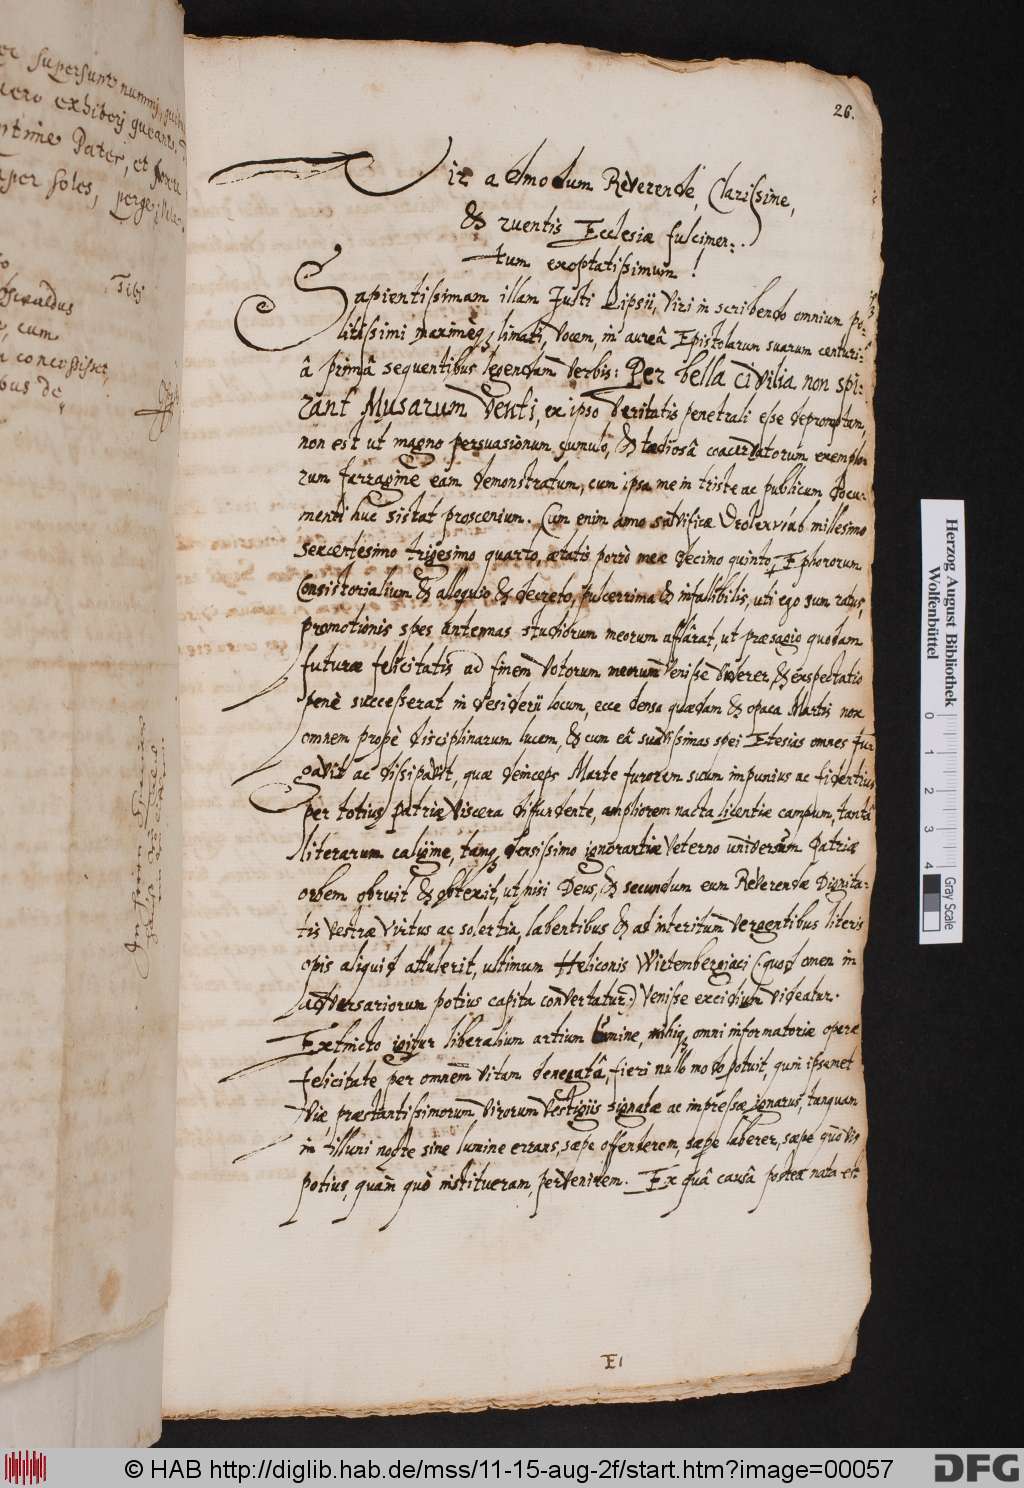 26.
Vir admodum Reverende, Clarissime,
& ruentis Ecclesiæ fulcimen=
tum exoptatissimum!
Sapientissimam illam Justi Lipsii, Viri in scribendo omnium po-
litissimi maximeq; limati, vocem, in aureâ Epistolarum suarum centuri-
â primâ sequentibus legendam verbis: Per bella civilia non spi-
rant Musarum venti, ex ipso veritatis penetrali esse depromptam,
non est ut magno persuasionum cumulo, & tædiosâ coacervatorum exemplo
rum farragine eam demonstratum, cum ipsa me in triste ac publicum docu-
menti huc sistat proscenium. Cum enim anno salvificæ millesimo
sexcentesimo trigesimo quarto, ætatis porrò meæ decimo quinto, Ephororum
Consistorialium & alloquio & decreto, pulcerrima & infalibilis, uti ego sum ratus,
promotionis spes antennas studiorum meorum afflârat, ut præsagio quodam
futuræ felicitatis ad finem votorum meorum venisse viderer, & exspectatio
penè successerat in desiderij locum, ecce densa quædam & opaca Martis nox
omnem propè disciplinarum lucem, & cum eâ suavissimas spei Etesias omnes fu-
gavit ac dissipavit, quæ deinceps Marte furorem suum impunius ac fidentius
per totius patriæ viscera diffundente, ampliorem nacta licentiæ campum, tantâ
literarum caligine, tanq; densissimo ignorantiæ veterno universum Patriæ
orbem obruit & obtexit, ut nisi Deus, & secundum eum Reverendæ Dignita-
tis Vestræ virtus ac solertia, labentibus & ad interitum vergentibus literis
opis aliquid attulerit, ultimum Heliconis Wirtembergiaci (:quod omen in
adversariorum potius capita convertatur:) venisse excidium videatur.
Extincto igitur liberalium artium lumine, mihiq; omni informatoriæ operæ
felicitate per omnem vitam denegatâ, fieri nullo modo potuit, quin ipsamet
viæ, præstantissimorum virorum vestigiis signatæ ac impressæ ignarus, tanquam
in illuni nocte sine lumine errans, sæpe offenderem, sæpe laberer, sæpe quò vis
potius, quam quò institueram, pervenirem. Ex quâ causâ postea nata est
E1
Herzog August Bibliothek
Wolfenbüttel
0 1 2 3 4
Gray Scale
© HAB http://diglib.hab.de/mss/11-15-aug-2f/start.htm?image=00057
DFG